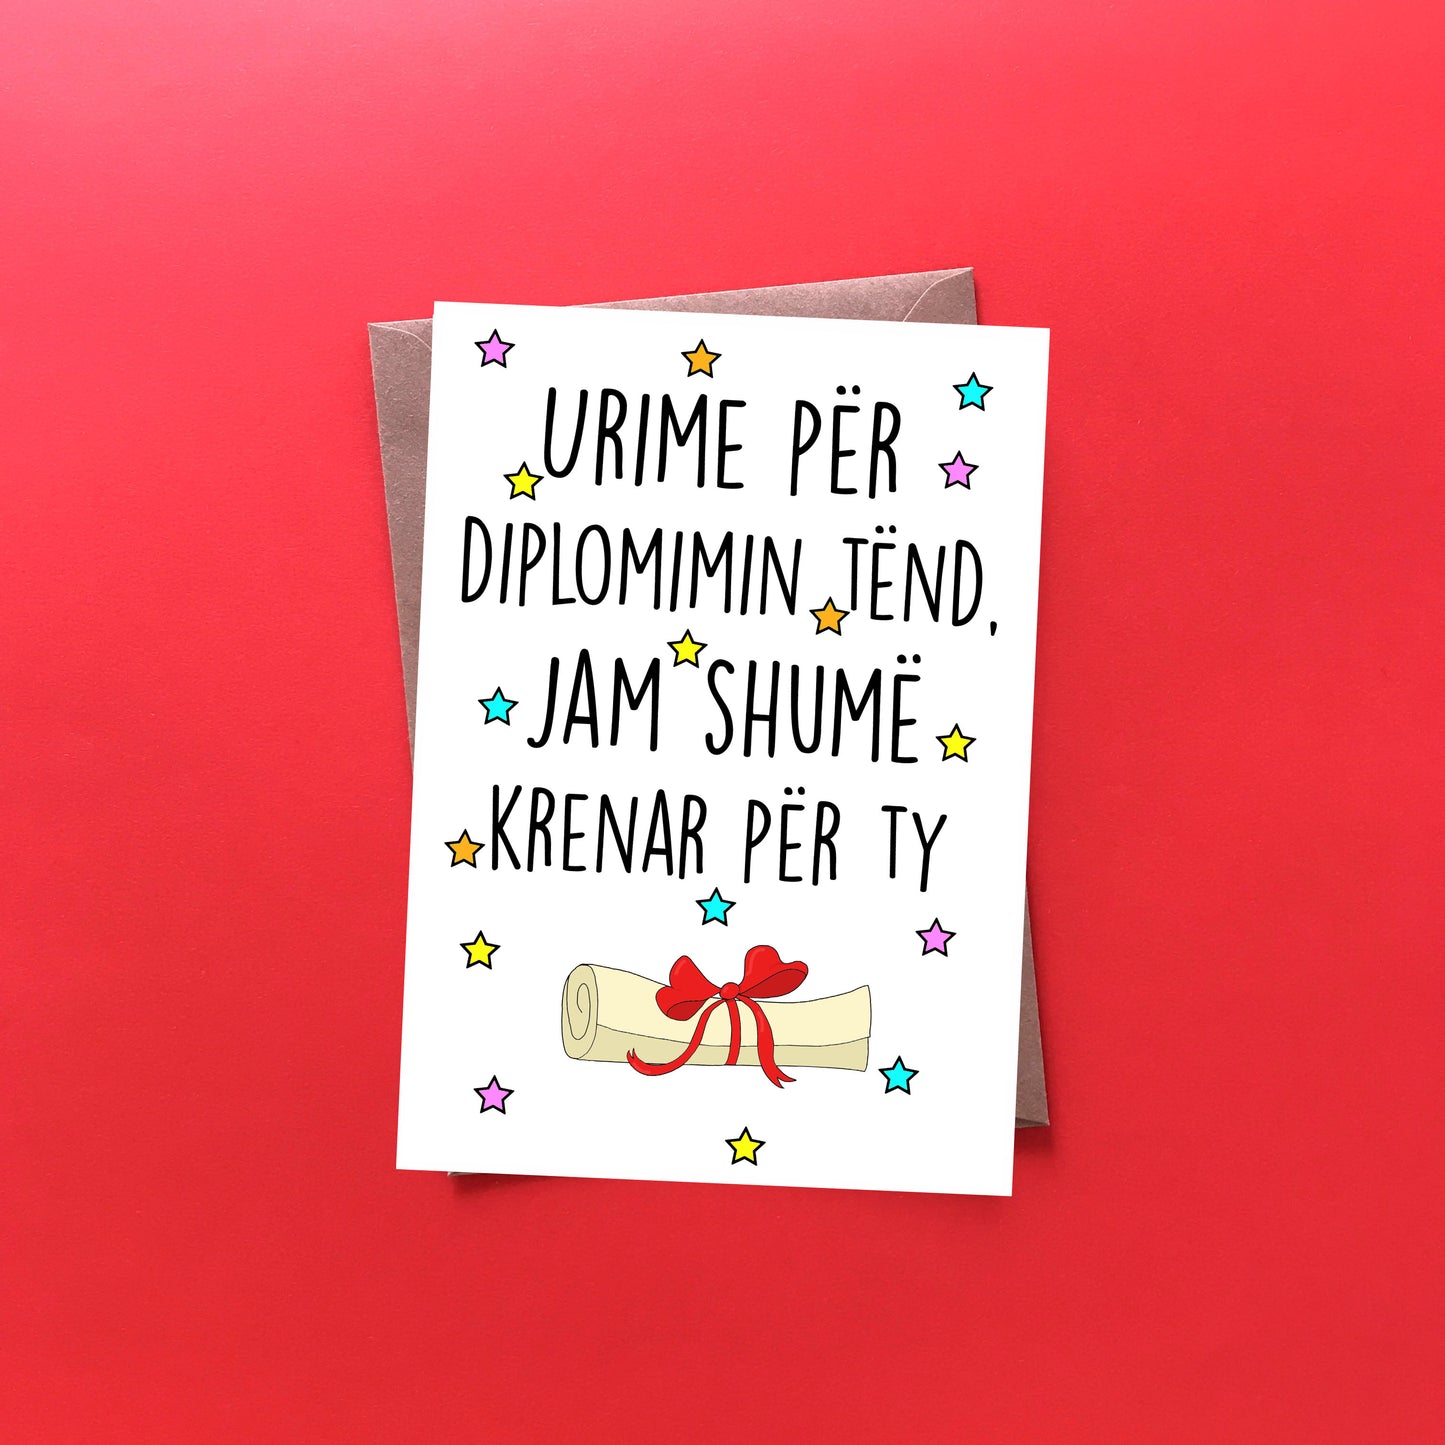 URIME PËR
DIPLOMIMIN TËND,
JAM SHUMË
KRENAR PËR TY